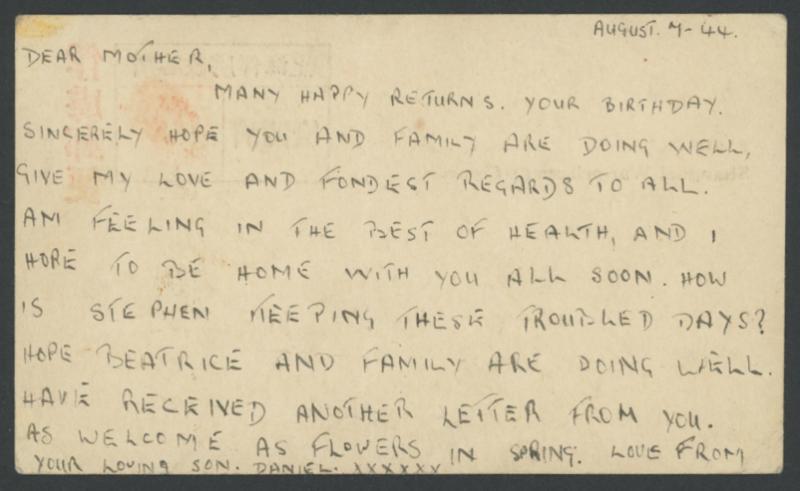 AUGUST. 7-44.
DEAR MOTHER,
MANY HAPPY RETURNS. YOUR BIRTHDAY.
SINCERELY HOPE YOU AND FAMILY ARE DOING WELL,
GIVE MY LOVE AND FONDEST REGARDS TO ALL.
AM FEELING IN THE BEST OF HEALTH, AND I
HOPE TO BE HOME WITH YOU ALL SOON. HOW
IS STEPHEN KEEPING THESE TROUBLED DAYS?
HOPE BEATRICE AND FAMILY ARE DOING WELL.
HAVE RECEIVED ANOTHER LETTER FROM YOU.
AS WELCOME AS FLOWERS IN SPRING. LOVE FROM
YOUR LOVING SON. DANIEL. XXXXXX